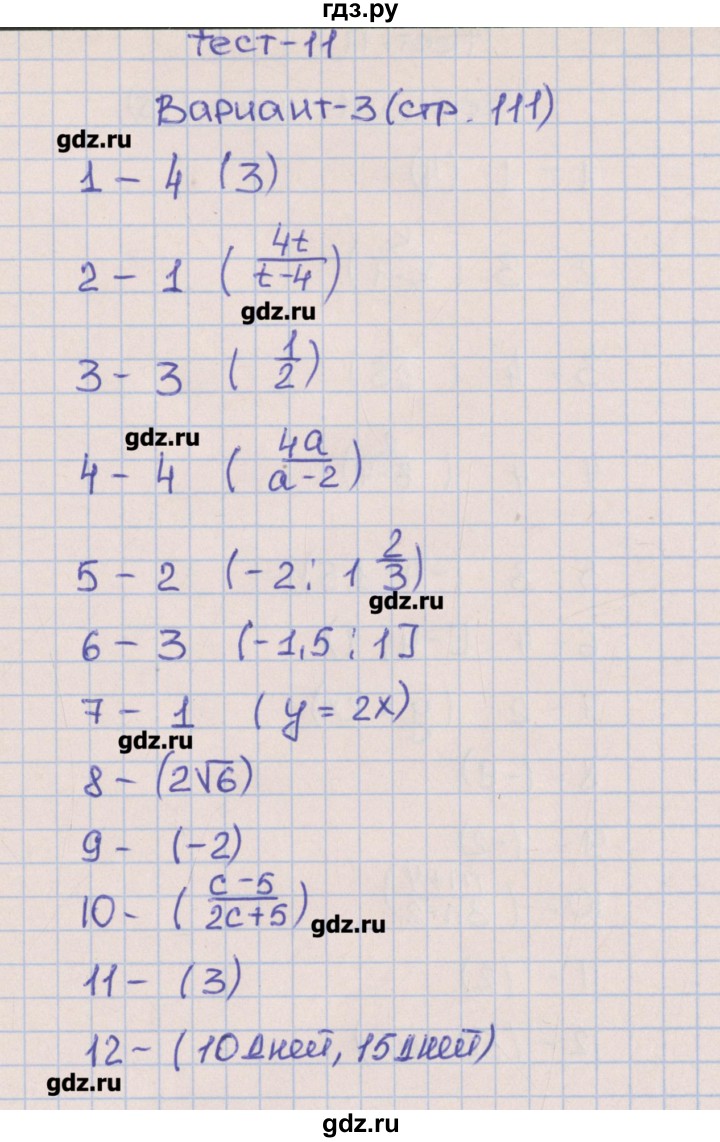 гдз.ру
Тест-11
Вариант-3 (стр. 111)
gdz.ru
1 - 4 (3)
2 - 1 (4t/(t-4))
gdz.ru
3 - 3 (1/2)
gdz.ru
4 - 4 (4a/(a-2))
5 - 2 (-2; 1 2/3)
gdz.ru
6 - 3 (-1,5; 1]
7 - 1 (y = 2x)
gdz.ru
8 - (2√6)
9 - (-2)
10 - ((c-5)/(2c+5))
gdz.ru
11 - (3)
12 - (10 дней, 15 дней)
gdz.ru
gdz.ru